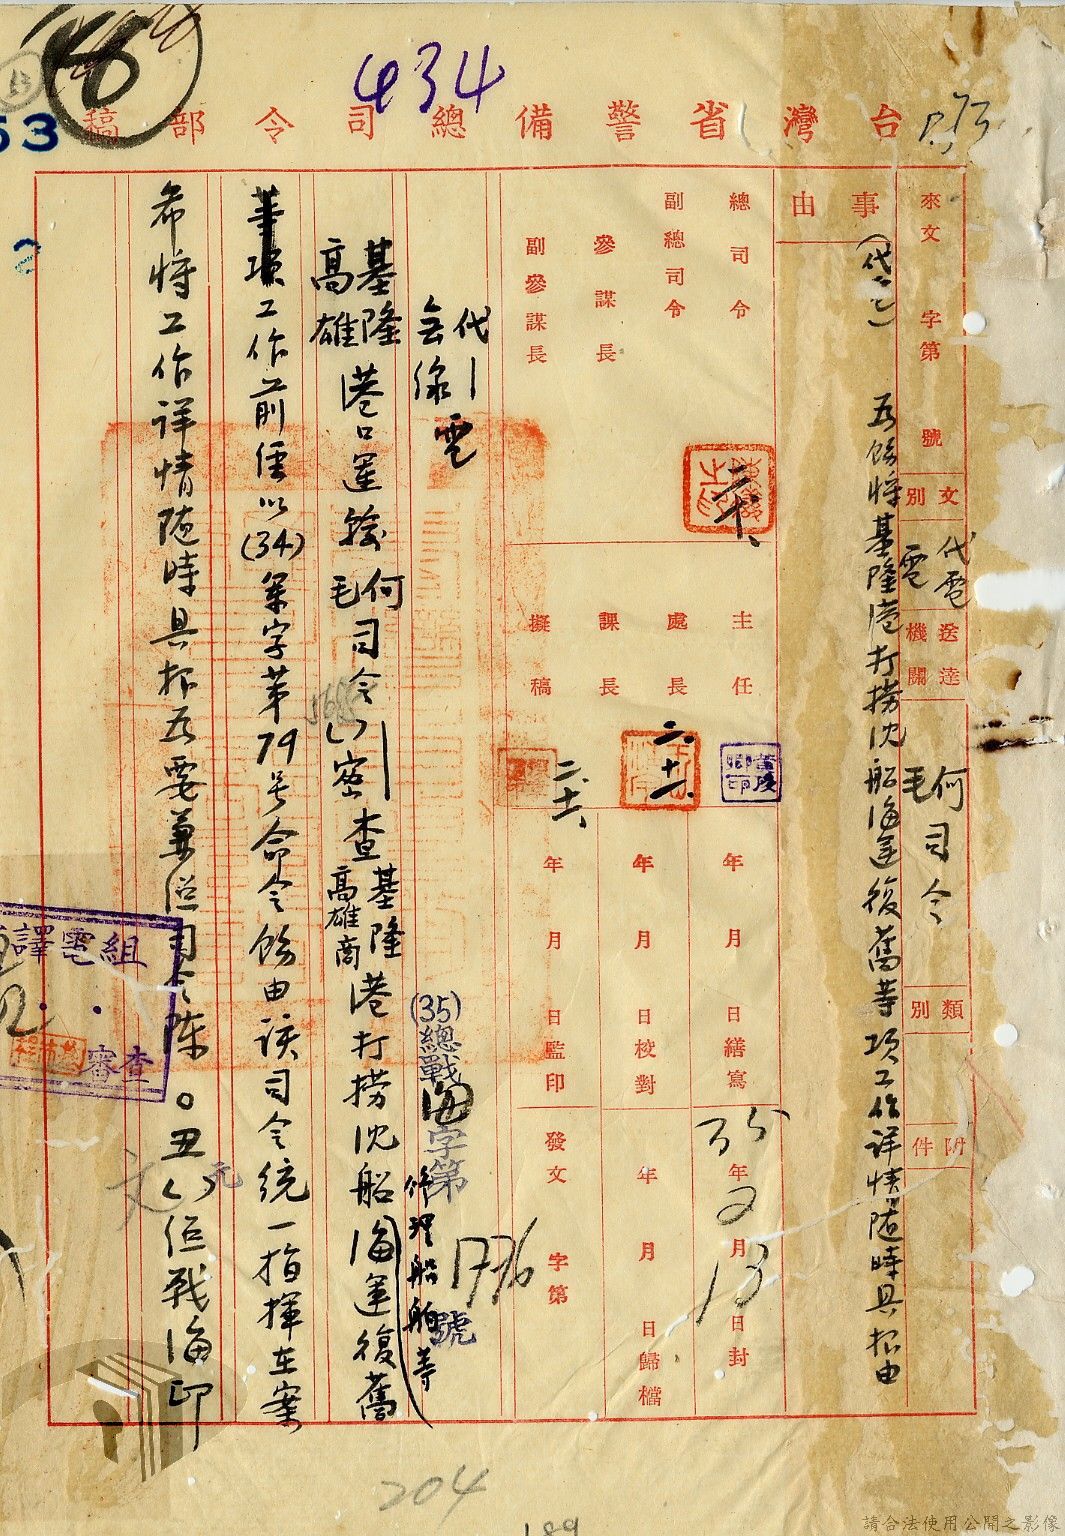 434
台灣省警備總司令部稿
53
來文 字第 號
文別 代電
電
送達機關 何
毛 司令
類別
附件
事由
(代電) 飭將基隆港打撈沈船海運復舊等項工作詳情隨時具報由
總司令
副總司令
參謀長
副參謀長
二、十六、
主任
處長
課長
擬稿
二、十六、
二、十六、
年 月 日繕寫
年 月 日校對
年 月 日監印
35年2月13日封
年 月 日歸檔
發文 字第 號
(35)總戰海字第1776號
代電
基隆
高雄港口運輸何
毛司令()密查基隆
高雄港打撈沈船海運復舊
修理船舶等
項工作前經以(34)軍字第79号命令飭由該司令統一指揮在案
希將工作詳情隨時具報為要兼總司令陳○丑()元佢戰海印
譯電組
審查
204
189
請合法使用公開之影像